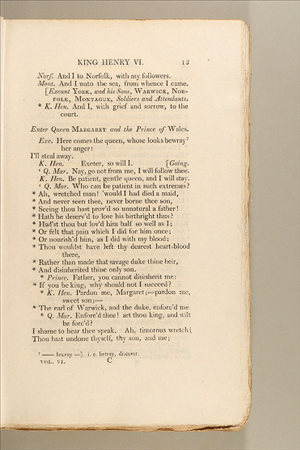 KING HENRY VI. 13
Norf. And I to Norfolk, with my followers.
Mont. And I unto the sea, from whence I came.
[Exeunt YORK, and his Sons, WARWICK, NOR-
FOLK, MONTAGUE, Soldiers and Attendants.
* K. Hen. And I, with grief and sorrow, to the
court.
Enter Queen MARGARET and the Prince of Wales.
Exe. Here comes the queen, whose looks bewray¹
her anger:
I'll steal away.
K. Hen. Exeter, so will I. [Going.
‘ Q. Mar. Nay, go not from me, I will follow thee.
K. Hen. Be patient, gentle queen, and I will stay.
‘ Q. Mar. Who can be patient in such extremes?
* Ah, wretched man! 'would I had died a maid,
* And never seen thee, never borne thee son,
* Seeing thou hast prov'd so unnatural a father!
* Hath he deserv'd to lose his birthright thus?
* Had'st thou but lov'd him half so well as I;
* Or felt that pain which I did for him once;
* Or nourish'd him, as I did with my blood;
* Thou wouldst have left thy dearest heart-blood
there,
* Rather than made that savage duke thine heir,
* And disinherited thine only son.
* Prince. Father, you cannot disinherit me:
* If you be king, why should not I succeed?
* K. Hen. Pardon me, Margaret;—pardon me,
sweet son;—
* The earl of Warwick, and the duke, enforc'd me.
* Q. Mar. Enforc'd thee! art thou king, and wilt
be forc'd?
I shame to hear thee speak. Ah, timorous wretch!
Thou hast undone thyself, thy son, and me;
¹ —— bewray —] i. e. betray, discover
VOL. VI. C